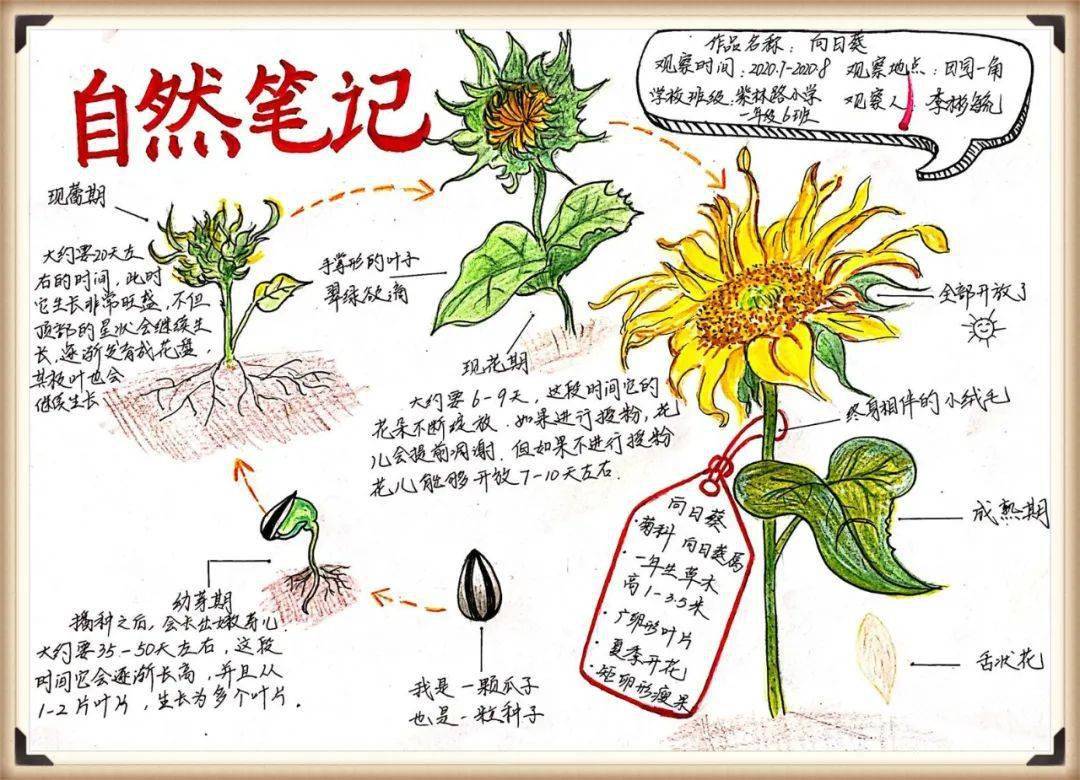 自然笔记
作品名称：向日葵
观察时间：2020.7-2020.8 观察地点：田园一角
学校班级：紫林路小学 观察人：李彬毓
一年级6班
现蕾期
大约要20天左
右的时间，此时
它生长非常旺盛，不但
顶部的星状会继续生
长，逐渐发育成花盘，
其极叶也会
继续生长
手掌形的叶子
翠绿欲滴
现花期
大约要6-9天，这段时间它的
花朵不断绽放．如果进行授粉，花
儿会提前凋谢．但如果不进行授粉
花儿能够开放7-10天左右．
全部开放了
终身相伴的小绒毛
成熟期
舌状花
向日葵
·菊科 向日葵属
·一年生草木
高1-3.5米
·广卵形叶片
·夏季开花
·矩卵形瘦果
幼芽期
播种之后，会长出嫩苗儿．
大约要35-50天左右，这段
时间它会逐渐长高，并且从
1-2片叶片，生长为多个叶片．
我是一颗瓜子
也是一粒种子